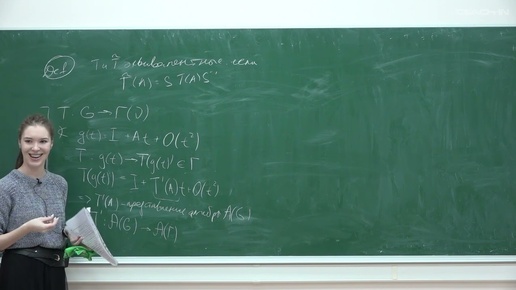 Def T и T̂ эквивалентные если
T̂(A) = S T(A) S⁻¹
] T: G → Γ(V)
g(t) = I + At + O(t²)
T: g(t) → T(g(t)) ∈ Γ
T(g(t)) = I + T'(A)t + O(t²)
⇒ T'(A) - представление алгебры A(G)
T': A(G) → A(Γ)